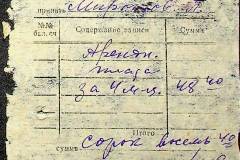 принять Миронов
№№ Содержание записи Сумма
бил. сч
Арендн.
плата
за 4 м-ля 48 40
Итого
сумма сорок восемь 40